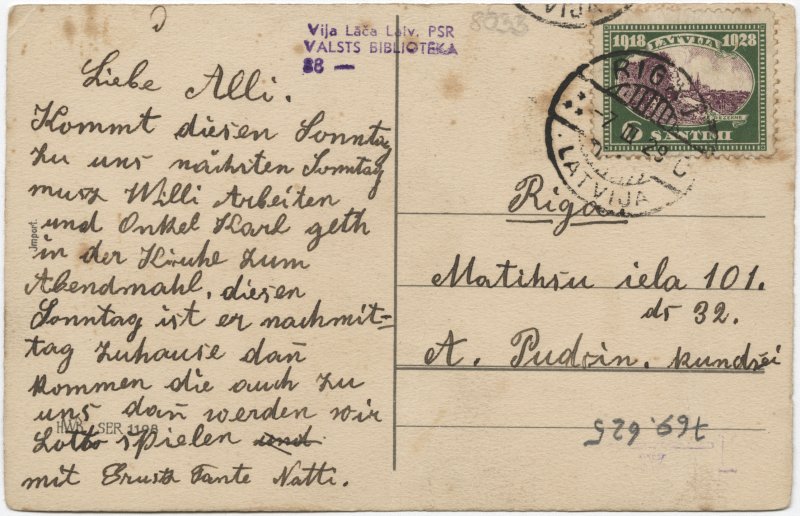 VIJA
8053
Vija Lāča Latv. PSR
VALSTS BIBLIOTEKA
88 —
1918 LATVIJA 1928
6 SANTIMI
RIGA
7 III 29
LATVIJA
Liebe Alli.
Kommt diesen Sonntag
zu uns nächsten Sonntag
musz Willi Arbeiten
und Onkel Karl geth
in der Kirche zum
Abendmahl, diesen
Sonntag ist er nachmit-
tag zuhause dan̄
kommen die auch zu
uns dan̄ werden wir
Lotto spielen und
mit Grusz Tante Natti.
Import.
HWB SER 1190
Riga
Matihsu iela 101.
ds 32.
A. Pudzin. kundzei
769.625